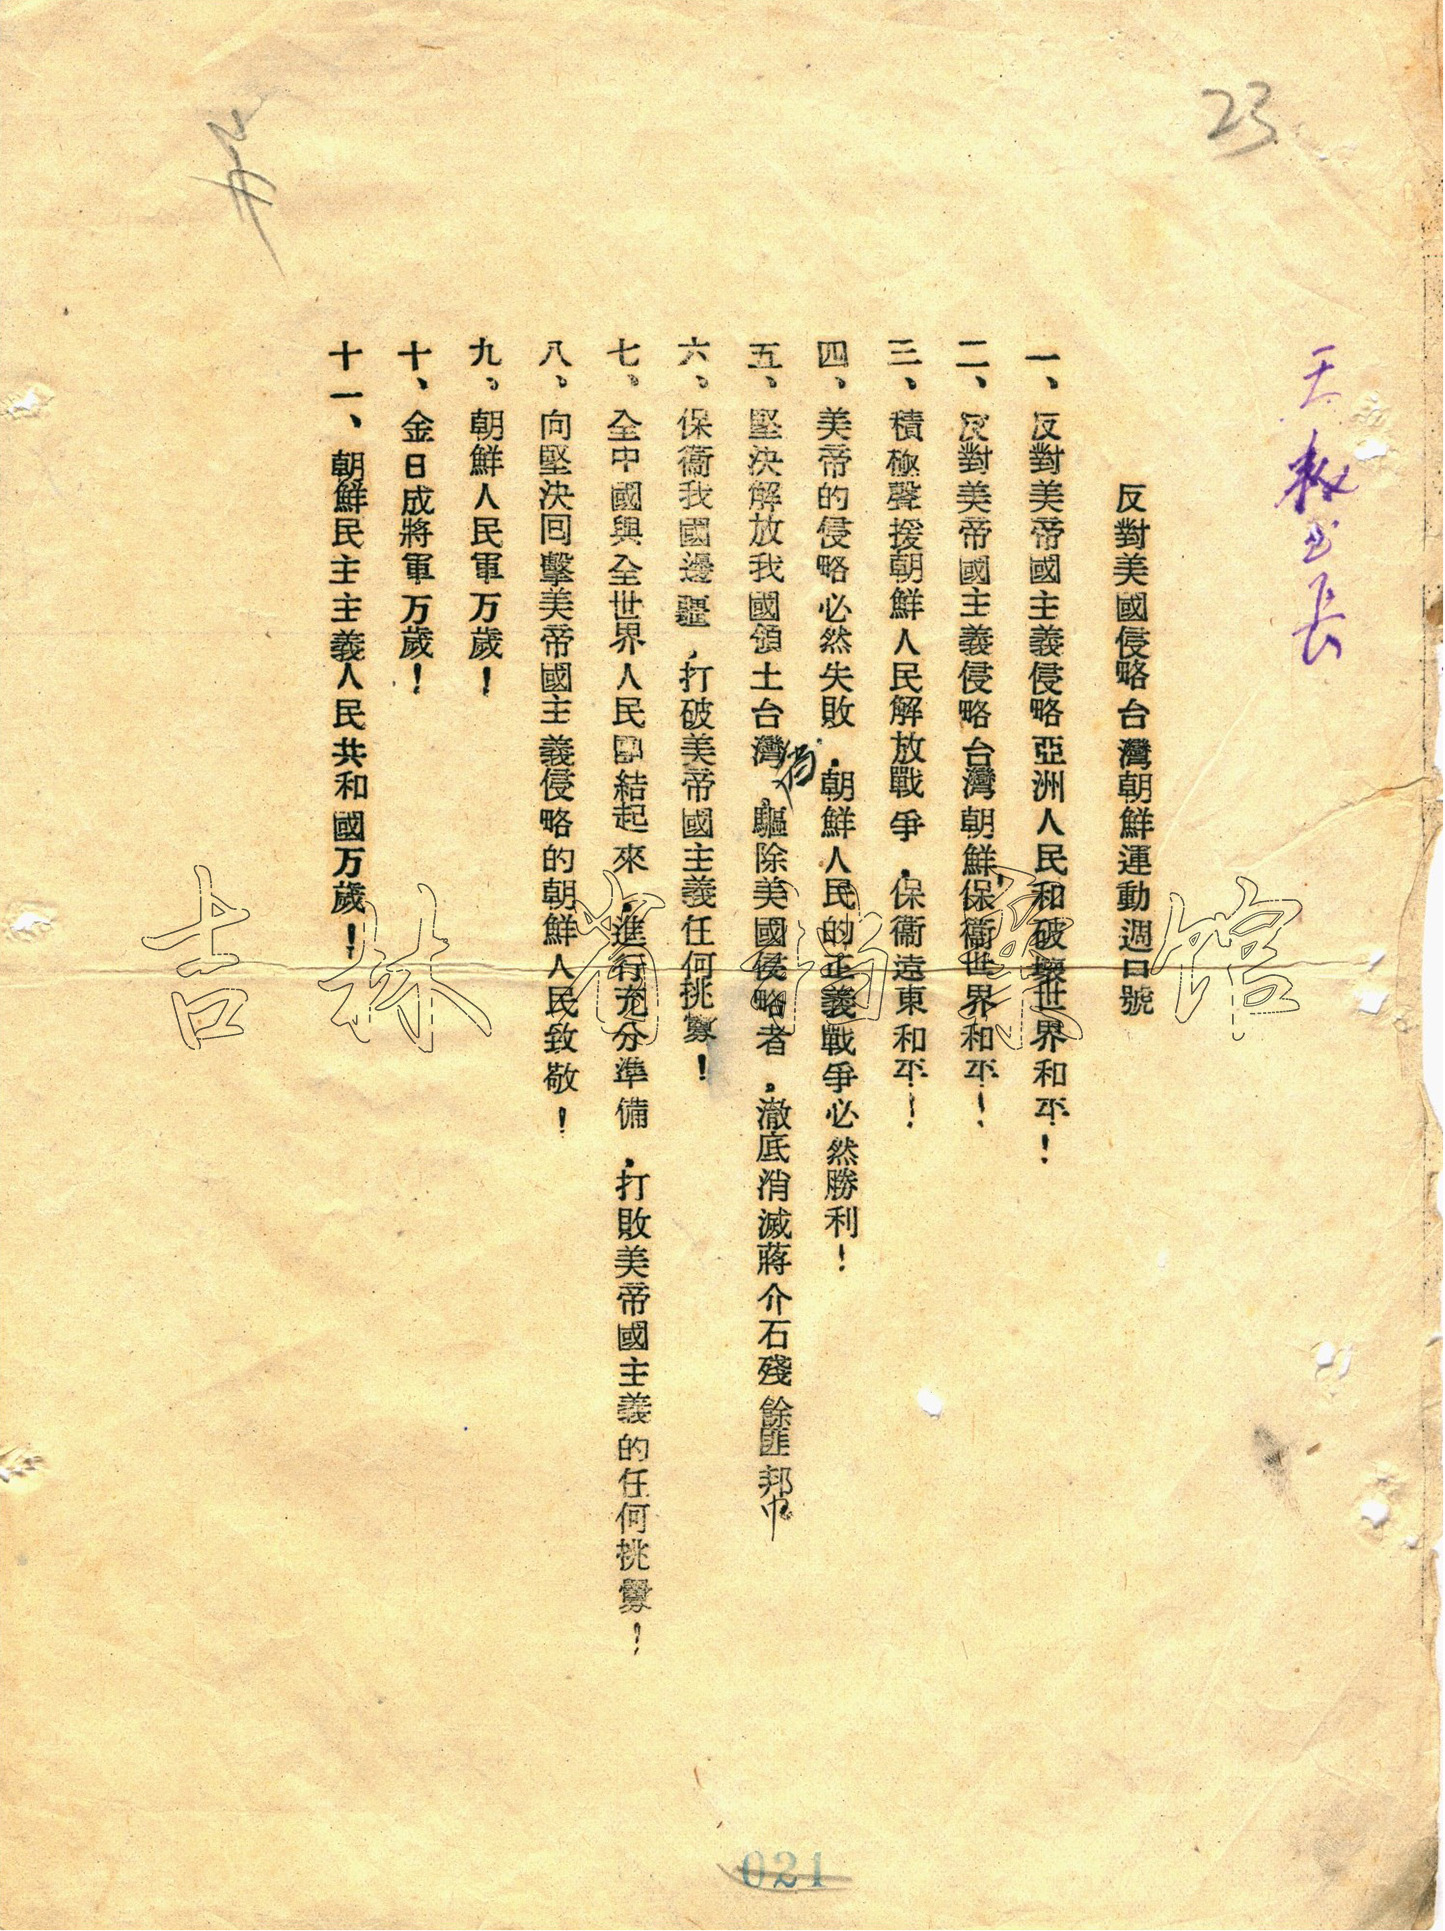 23
秘書長
反對美國侵略台灣朝鮮運動週口號
一、反對美帝國主義侵略亞洲人民和破壞世界和平！
二、反對美帝國主義侵略台灣朝鮮，保衞世界和平！
三、積極聲援朝鮮人民解放戰爭，保衞遠東和平！
四、美帝的侵略必然失敗，朝鮮人民的正義戰爭必然勝利！
五、堅決解放我國領土台灣，驅除美國侵略者，澈底消滅蔣介石殘餘匪邦
六、保衞我國邊疆，打破美帝國主義任何挑釁！
七、全中國與全世界人民團結起來，進行充分準備，打敗美帝國主義的任何挑釁！
八、向堅決回擊美帝國主義侵略的朝鮮人民致敬！
九、朝鮮人民軍万歲！
十、金日成將軍万歲！
十一、朝鮮民主主義人民共和國万歲！
吉林省档案馆
021